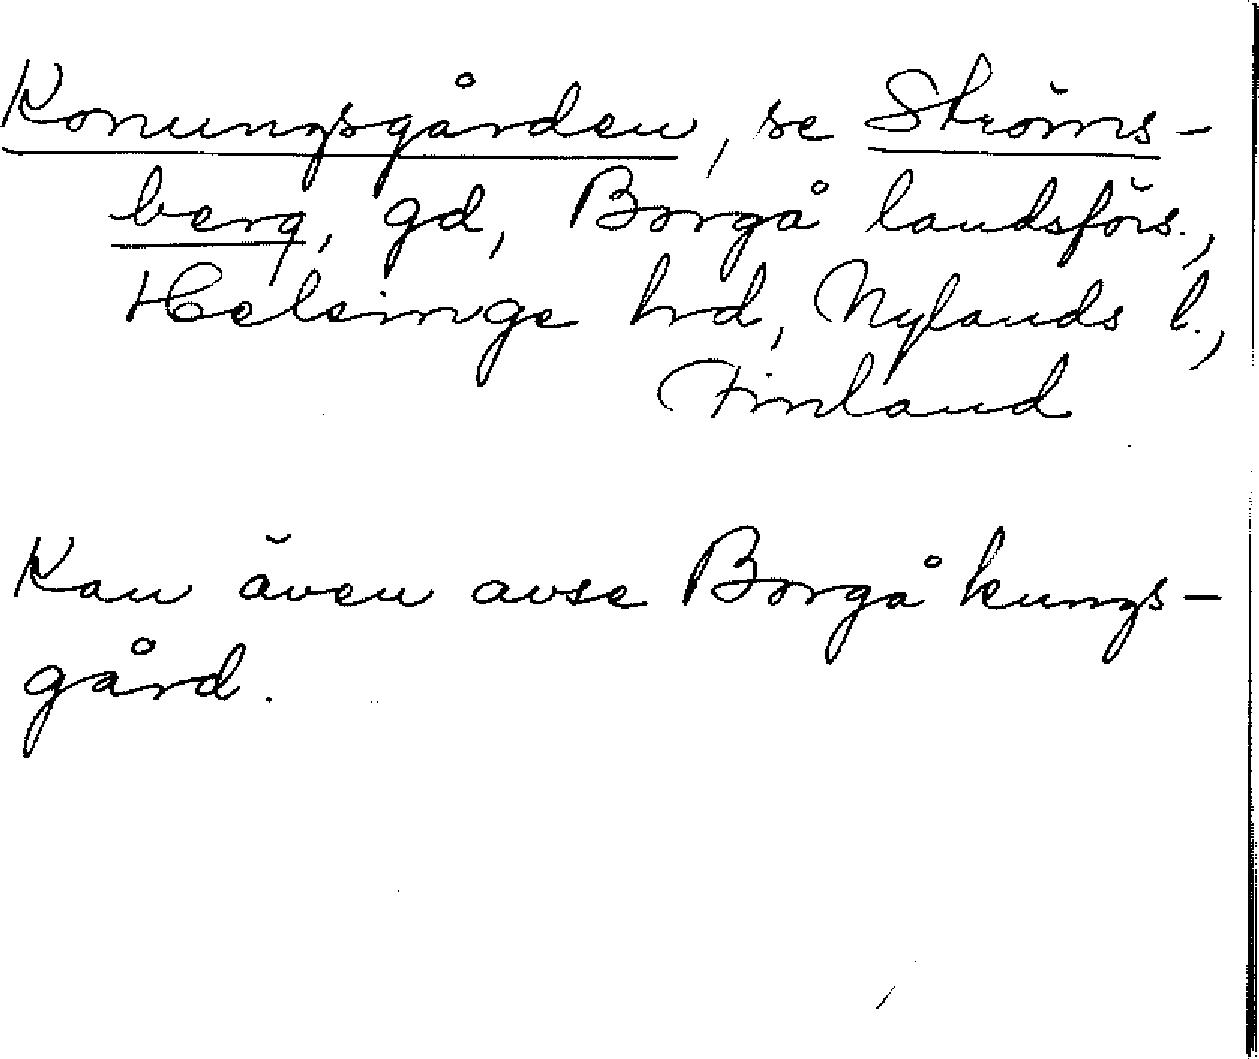 Konungsgården, se Ströms-
berg, gd, Borgå landsförs.,
Helsinge hrd, Nylands l.,
Finland
Kan även avse Borgå kungs-
gård.